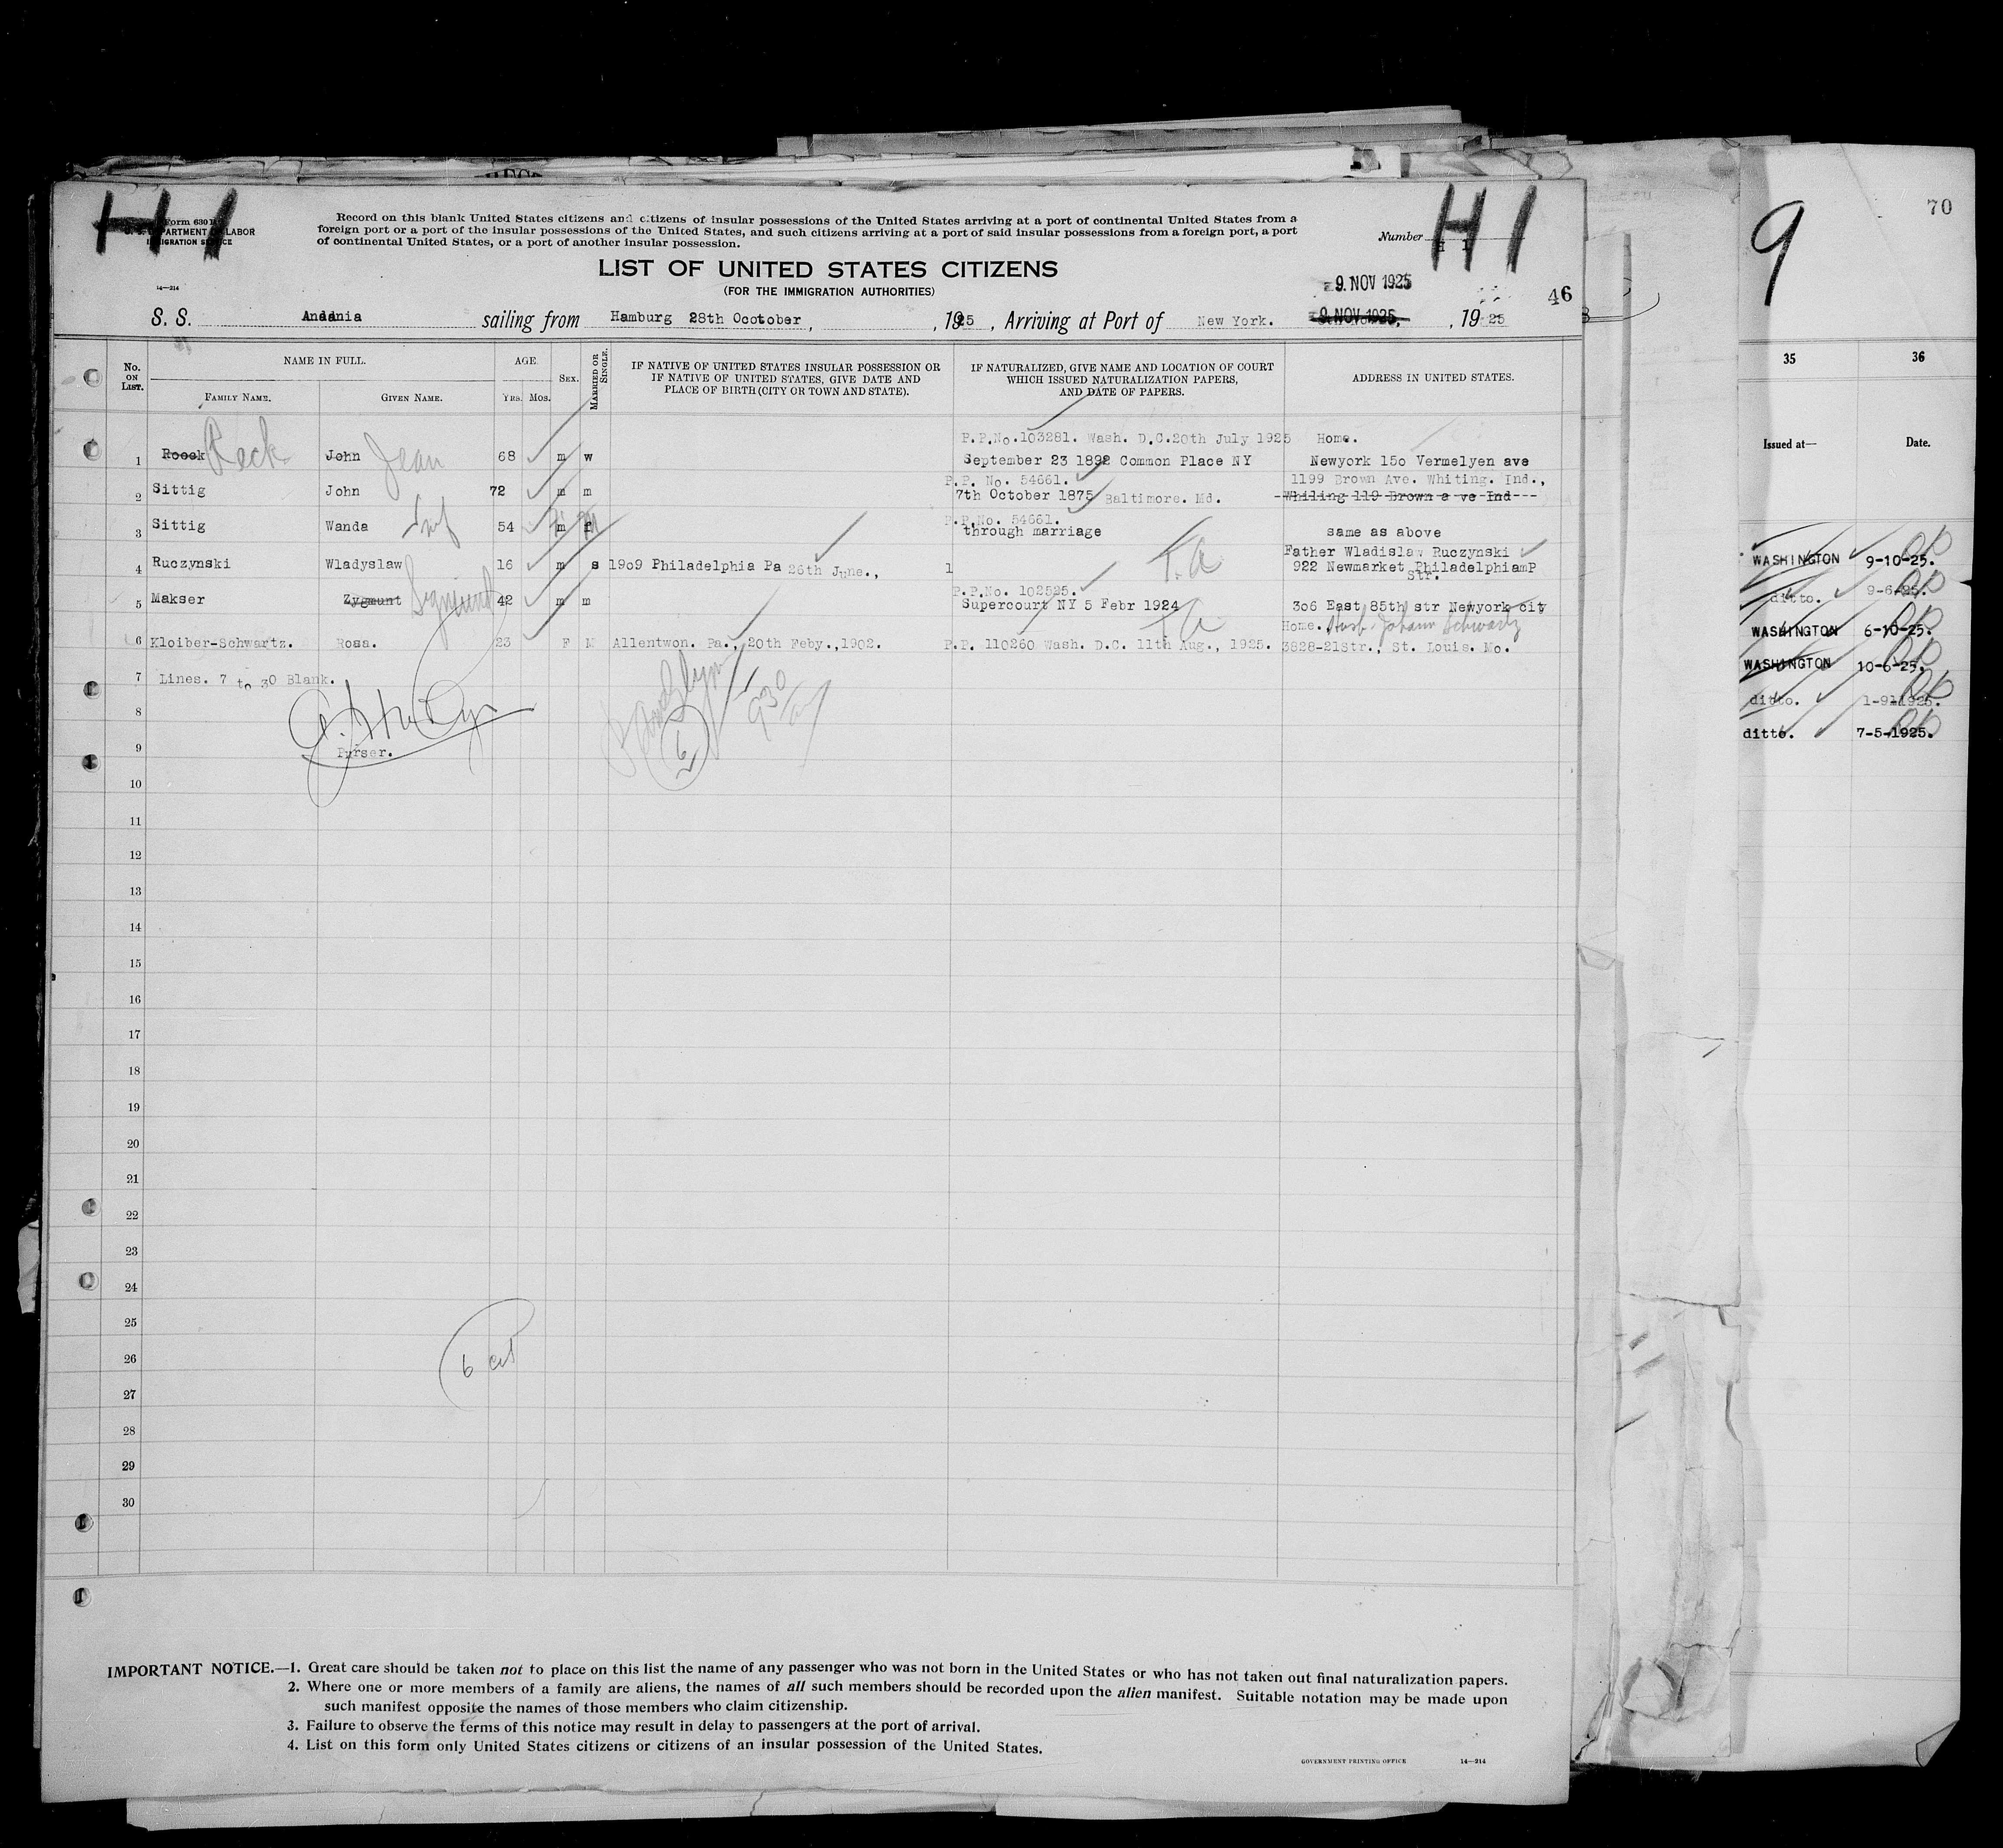 H1
Form 630
U. S. DEPARTMENT OF LABOR
IMMIGRATION SERVICE
Record on this blank United States citizens and citizens of insular possessions of the United States arriving at a port of continental United States from a
foreign port or a port of the insular possessions of the United States, and such citizens arriving at a port of said insular possessions from a foreign port, a port
of continental United States, or a port of another insular possession.
Number H 1
H1
14—214
LIST OF UNITED STATES CITIZENS
(FOR THE IMMIGRATION AUTHORITIES)
9. NOV 1925
46
S. S. Andania sailing from Hamburg 28th Ocotober , , 1925 , Arriving at Port of New York. 9 NOV 1925. , 19 25
No. ON LIST.
NAME IN FULL.
FAMILY NAME.
GIVEN NAME.
AGE
YRS. MOS.
SEX.
MARRIED OR SINGLE.
IF NATIVE OF UNITED STATES INSULAR POSSESSION OR
IF NATIVE OF UNITED STATES, GIVE DATE AND
PLACE OF BIRTH (CITY OR TOWN AND STATE).
IF NATURALIZED, GIVE NAME AND LOCATION OF COURT
WHICH ISSUED NATURALIZATION PAPERS,
AND DATE OF PAPERS.
ADDRESS IN UNITED STATES.
P.P.No.103281. Wash. D.C.20th July 1925 Home.
1 Roeck Reck John Jean 68 m w September 23 1892 Common Place NY Newyork 15o Vermelyen ave
P.P. No. 54661. 1199 Brown Ave. Whiting. Ind.,
2 Sittig John 72 m m 7th October 1875 Baltimore. Md. Whiling 119 Brown a ve Ind---
P.P.No. 54661.
3 Sittig Wanda 54 m f through marriage same as above
Father Wladislaw Ruczynski
4 Ruczynski Wladyslaw 16 m s 19o9 Philadelphia Pa 26th June., 1 T.A 922 Newmarket PhiladelphiamP
Str.
P.P.No. 102525.
5 Makser Zygmunt Sigmund 42 m m Supercourt NY 5 Febr 1924 3o6 East 85th str Newyork city
Home. Husb. Johann Schwartz
6 Kloiber-Schwartz. Rosa. 23 F M Allentwon. Pa., 20th Feby.,1902. P.P. 110260 Wash. D.C. 11th Aug., 1925. 3828-21Str., St. Louis. Mo.
7 Lines. 7 to 30 Blank.
8
9 Purser.
6
930
10
11
12
13
14
15
16
17
18
19
20
21
22
23
24
25
26
6
27
28
29
30
IMPORTANT NOTICE.—1. Great care should be taken not to place on this list the name of any passenger who was not born in the United States or who has not taken out final naturalization papers.
2. Where one or more members of a family are aliens, the names of all such members should be recorded upon the alien manifest. Suitable notation may be made upon
such manifest opposite the names of those members who claim citizenship.
3. Failure to observe the terms of this notice may result in delay to passengers at the port of arrival.
4. List on this form only United States citizens or citizens of an insular possession of the United States.
GOVERNMENT PRINTING OFFICE 14—214
70
9
35 36
Issued at— Date.
WASHINGTON 9-10-25.
ditto. 9-6-25.
WASHINGTON 6-10-25.
WASHINGTON 10-6-25.
ditto. 1-9-1925.
ditto. 7-5-1925.